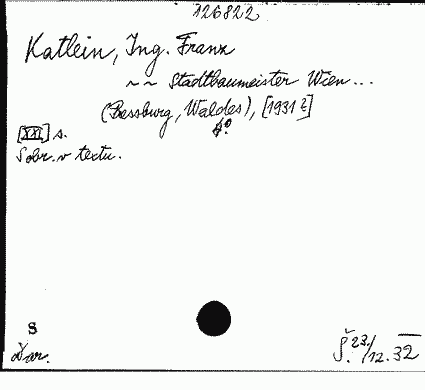 126822
Katlein, Ing. Franz
~ ~ Stadtbaumeister Wien...
(Pressburg, Waldes), [1931?]
4°.
[XXI] s.
S obr. v textu.
S
Dar.
Š. 23./12. 32